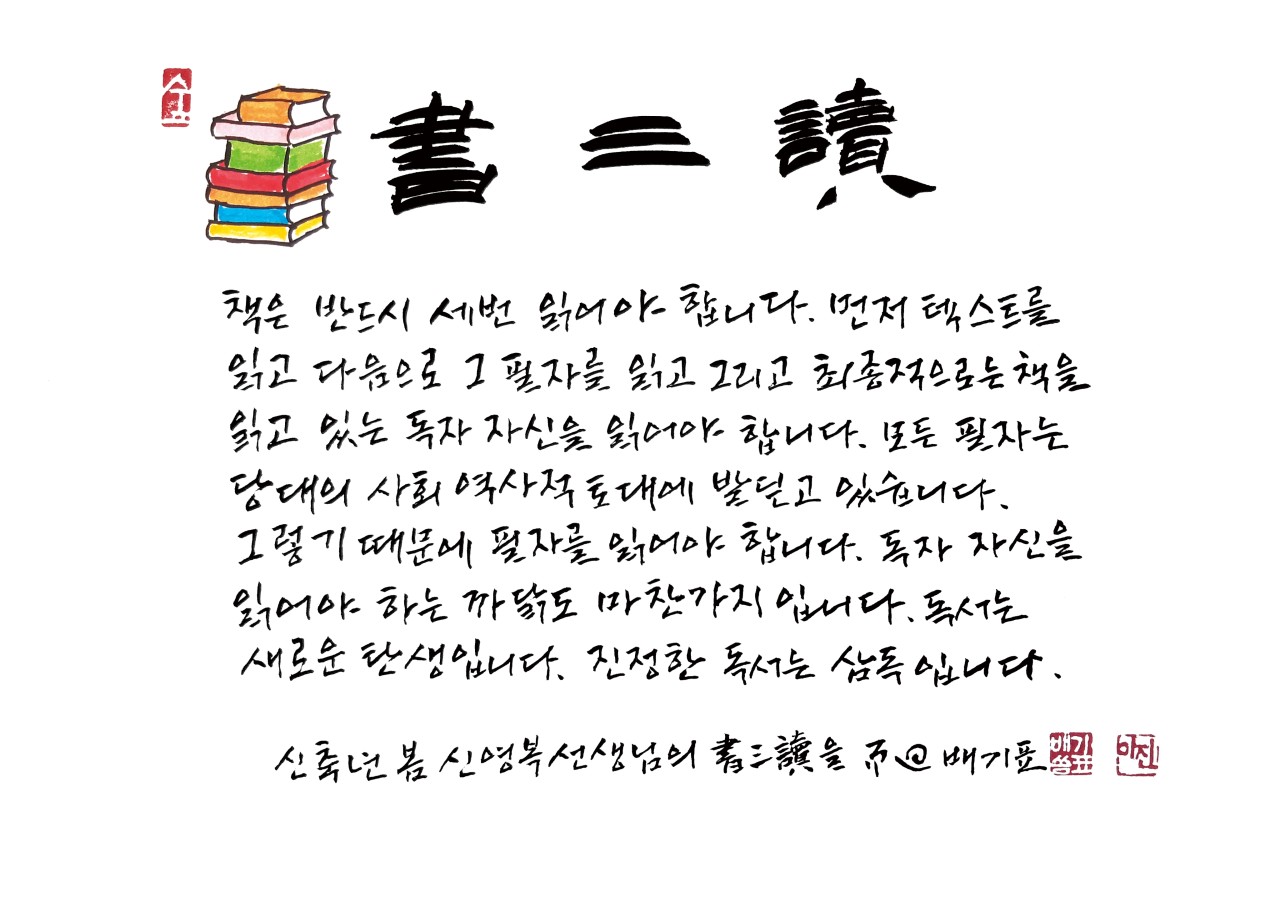 書三讀
책은 반드시 세번 읽어야 합니다. 먼저 텍스트를
읽고 다음으로 그 필자를 읽고 그리고 최종적으로는 책을
읽고 있는 독자 자신을 읽어야 합니다. 모든 필자는
당대의 사회 역사적 토대에 발딛고 있습니다.
그렇기 때문에 필자를 읽어야 합니다. 독자 자신을
읽어야 하는 까닭도 마찬가지입니다. 독서는
새로운 탄생입니다. 진정한 독서는 삼독입니다.
신축년 봄 신영복선생님의 書三讀을 배기표
배기표씀